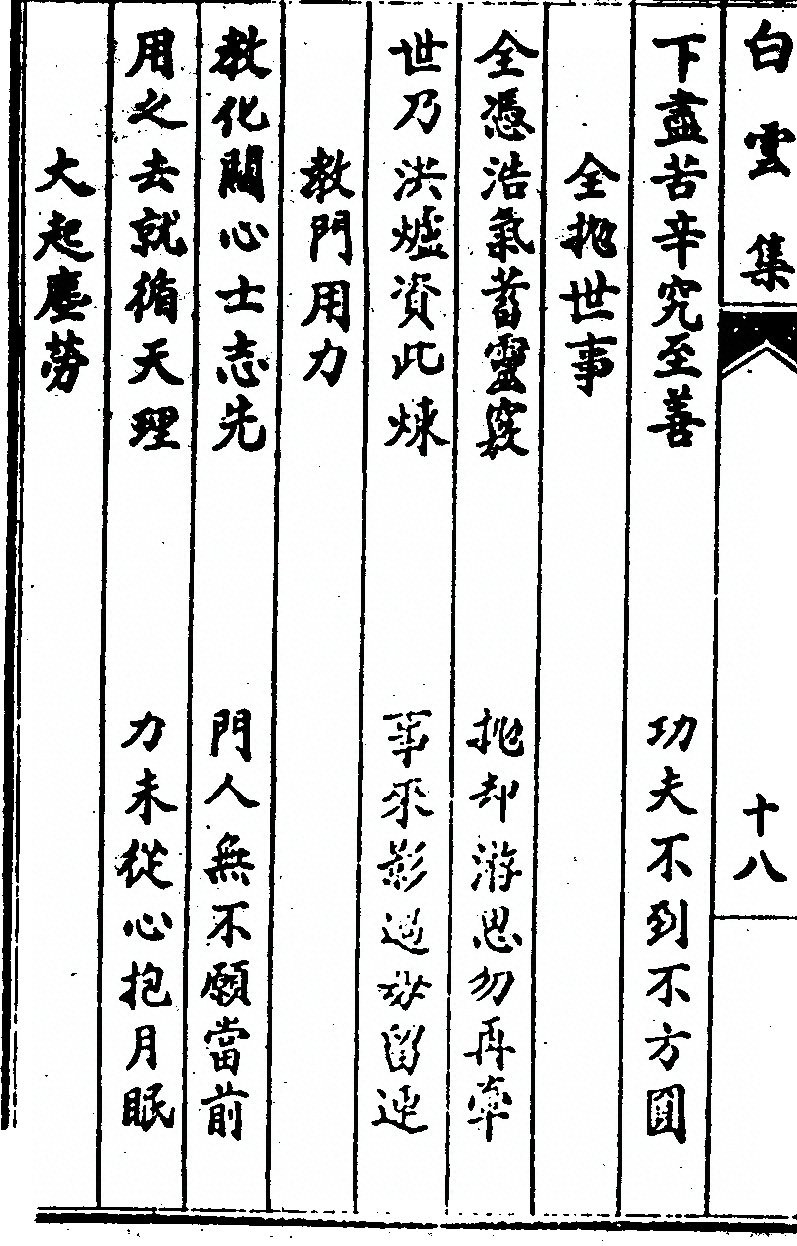 白雲集
十八
下盡苦辛究至善　功夫不到不方圓
全抛世事
全憑浩氣蓄靈竅　抛却游思勿再牽
世乃洪爐資此煉　事來影過毋留連
教門用力
教化關心士志先　門人無不願當前
用之去就循天理　力未從心抱月眠
大起塵勞